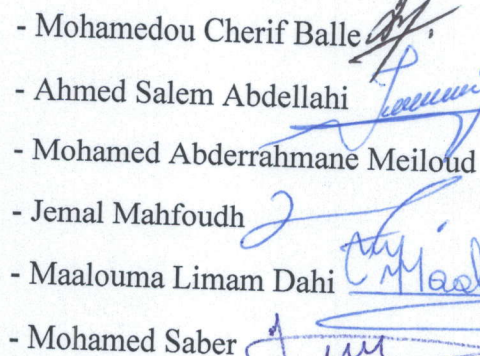 - Mohamedou Cherif Balle
- Ahmed Salem Abdellahi
- Mohamed Abderrahmane Meiloud
- Jemal Mahfoudh
- Maalouma Limam Dahi
- Mohamed Saber